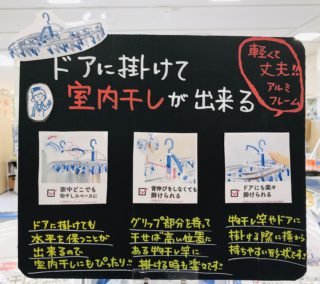 軽くて
丈夫!!
アルミ
フレーム
ドアに掛けて
室内干しが出来る
家中どこでも
物干しスペースに
背伸びをしなくても
掛けられる
ドアにも楽々
掛けられる
ドアに掛けても
水平を保つことが
出来るので
室内干しにもぴったり!!
グリップ部分を持って
干せば高い位置に
ある物干し竿に
掛ける時も楽々です!
物干し竿やドアに
掛ける際に横から
持ちやすい形状です!